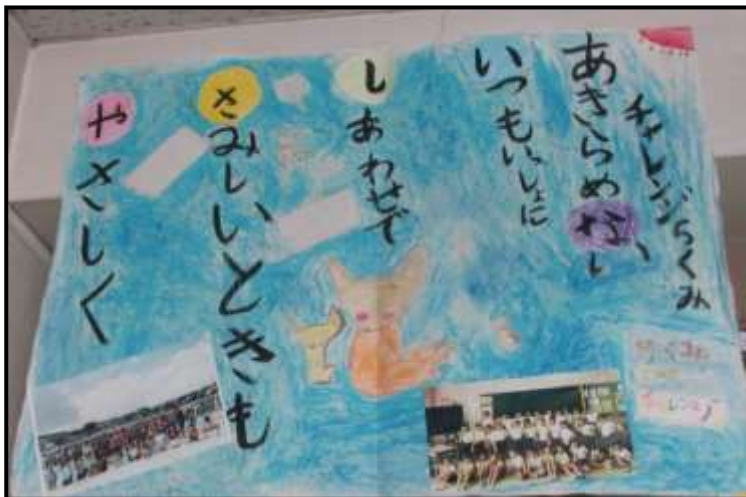 チャレンジらくみ
あきらめない
いつもいっしょに
しあわせで
さみしいときも
やさしく